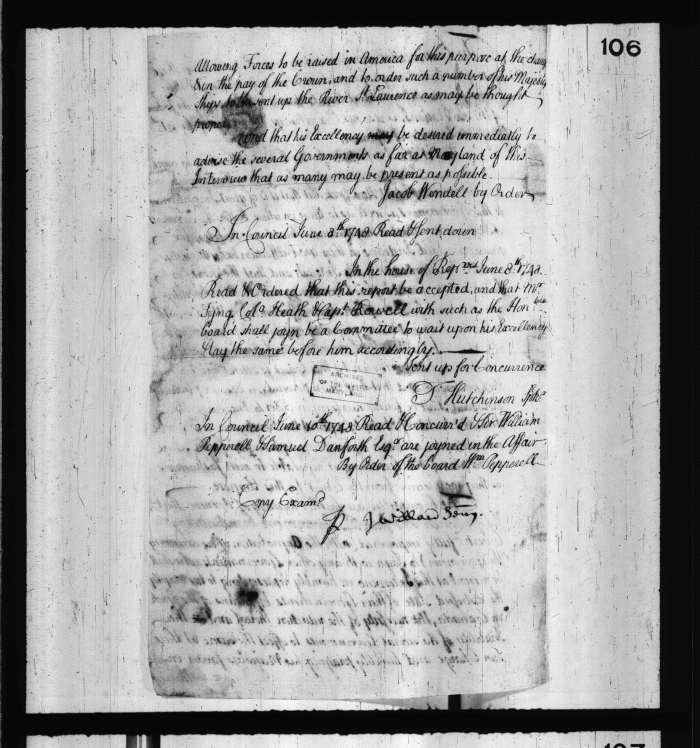 106
Allowing Forces to be raised in America for this purpose at the charg
& in the pay of the Crown, and to order such a number of his Majesty
Ships to be sent up the River St Laurence as may be thought
proper
And that his Excellency may be desired immediately to
advise the several Governments as far as Maryland of this
Interview that as many may be present as possible.
Jacob Wendell by Order
In Council June 8th 1748 Read & sent down
In the house of Repves June 8th 1748
Read & Ordered that this report be accepted, and that Mr
Tyng Colo Heath & Capt Rowell with such as the Honble
board shall joyn be a Committee to wait upon his Excellency
& lay the same before him accordingly.
Sent up for Concurrence
T. Hutchinson Spkr
ARCHIVES
OF THE
MARYLAND
In Council June 10th 1748 Read & Concur'd & Sr William
Pepperell & Samuel Danforth Esqrs are joyned in the Affair
By Order of the board Wm Pepperell
Copy Examd
J Willard Secry.